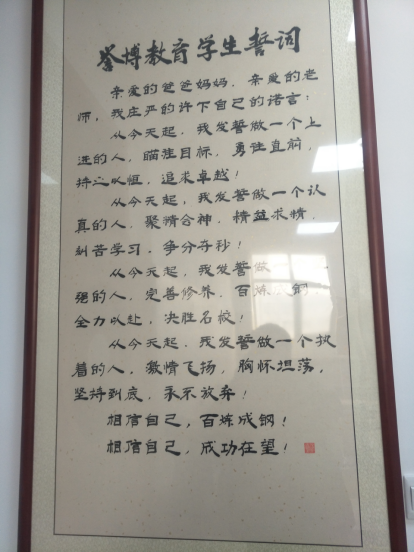 誉博教育学生誓词
亲爱的爸爸妈妈，亲爱的老
师，我庄严的许下自己的诺言：
从今天起，我发誓做一个上
进的人，瞄准目标，勇往直前，
持之以恒，追求卓越！
从今天起，我发誓做一个认
真的人，聚精会神，精益求精，
刻苦学习，争分夺秒！
从今天起，我发誓做
强的人，完善修养，百炼成钢，
全力以赴，决胜名校！
从今天起，我发誓做一个执
着的人，激情飞扬，胸怀坦荡，
坚持到底，永不放弃！
相信自己，百炼成钢！
相信自己，成功在望！